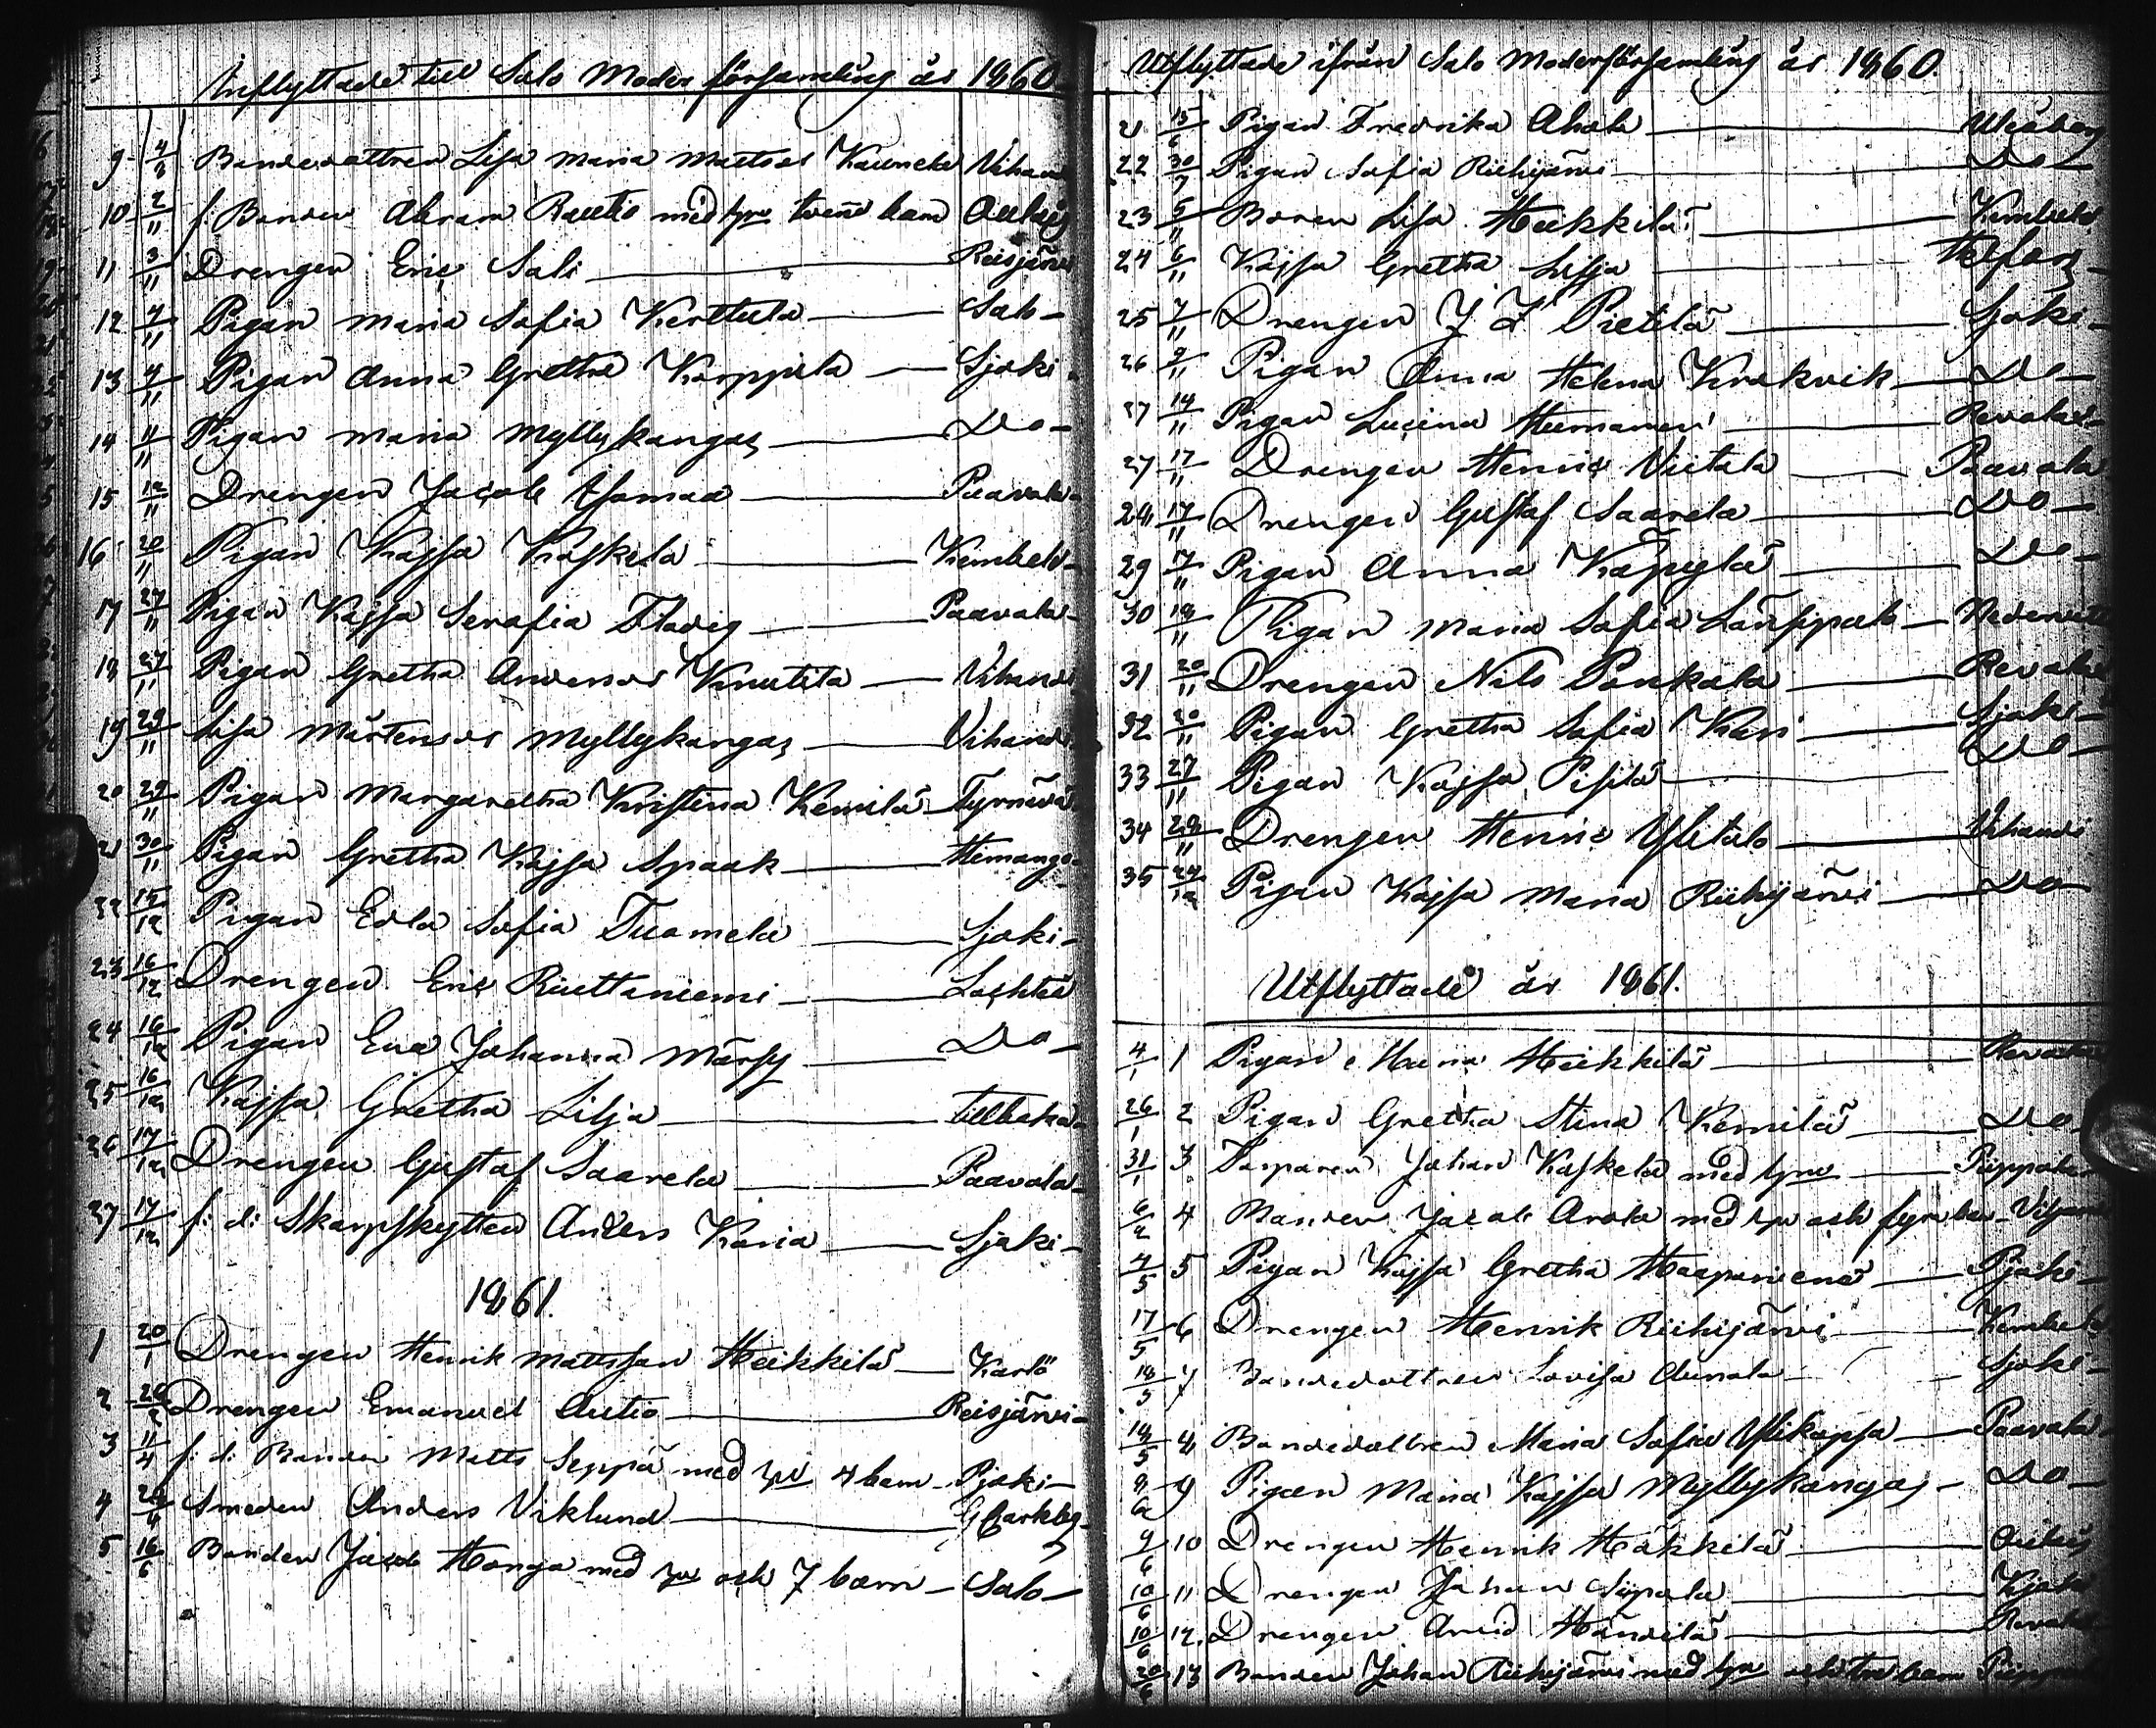 Inflyttade till Salo Moder församling år 1860
9 4/3 Bondedottren Lisa Maria Mattsdr Vihan
10 2/11 f: Bonden Abram Rautio med hru tvenne barn
11 3/11 Drengen Eric Salo Reisjärvi
12 4/11 Pigan Maria Sofia Kerttula Salo
13 4/11 Pigan Anna Gretha Korppila Sjoki
14 11/11 Pigan Maria Myllykangas Do
15 12/11 Drengen Jacob Paavola
16 20/11 Pigan Kajsa Kaskela Kembele
17 27/11 Pigan Kajsa Serafia Paavola
18 27/11 Pigan Gretha Andersdr Knutila Vihandi
19 29/11 Lisa Mårtensdr Myllykangas Vihandi
20 29/11 Pigan Margaretha Kristina Kemilä Tyrnävä
21 30/11 Pigan Gretha Kajsa Spaak Himango
22 15/12 Pigan Edla Sofia Tuomela Sjoki
23 16/12 Drengen Eric Ruettaniemi Lochteå
24 16/12 Pigan Eva Johanna Märsy Do
25 16/12 Kajsa Gretha Lilja tillbaka
26 17/12 Drengen Gustaf Saarela Paavola
27 17/12 f: d: Skarpskytten Anders Karia Sjoki
1861.
1 20/1 Drengen Henrik Mattsson Heikkilä Karlö
2 26/2 Drengen Emanuel Autio Reisjärvi
3 11/4 f: d: Bonden Matts Seppä med hru 4 barn Pjoki
4 24/4 Smeden Anders Viklund GCarleby
5 16/6 Bonden Jacob Honga med hru och 7 barn Salo
Utflyttade ifrån Salo Moderförsamling år 1860.
21 15/6 Pigan Fredrika Ahola Uleåborg
22 30/7 Pigan Sofia Riihijärvi Do
23 5/11 Lisa Heikkilä Kembele
24 6/11 Kajsa Gretha Lilja Helsfors
25 7/11 Drengen J Z Pietilä Sjoki
26 9/11 Pigan Anna Helena Krokvik Do
27 14/11 Pigan Lucina Revolax
27 17/11 Drengen Henric Viitala Paavola
28 17/11 Drengen Gustaf Saarela Do
29 17/11 Pigan Anna Käpylä Do
30 18/11 Pigan Maria Sofia Länsipalo Nedervetil
31 20/11 Drengen Nils Penkala Revolax
32 20/11 Pigan Gretha Sofia Kari Sjoki
33 27/11 Pigan Kajsa Pisilä Do
34 28/11 Drengen Henric Ylitalo Vihandi
35 24/12 Pigan Kajsa Maria Riihijärvi Do
Utflyttade år 1861.
4/1 1 Pigan Maria Heikkilä Revolax
26/1 2 Pigan Gretha Stina Kemilä Do
31/1 3 Torparen Johan Kaskela med hru Piippola
6/2 4 Bonden Jacob Arola med hru och fyra barn
4/5 5 Pigan Kajsa Gretha Haapaniemi Pjoki
17/5 6 Drengen Henrik Riihijärvi Kembele
18/5 7 Bondedottren Lovisa Aunola Sjoki
18/5 8 Bondedottren Maria Sofia Ylikajsa Paavola
8/6 9 Pigan Maria Kajsa Myllykangas Do
9/6 10 Drengen Henrik Häkkilä
10/6 11 Drengen Johan Siipola
10/6 12 Drengen Arvid Händilä Revolax
20/6 13 Bonden Johan Riihijärvi med hru och tre barn